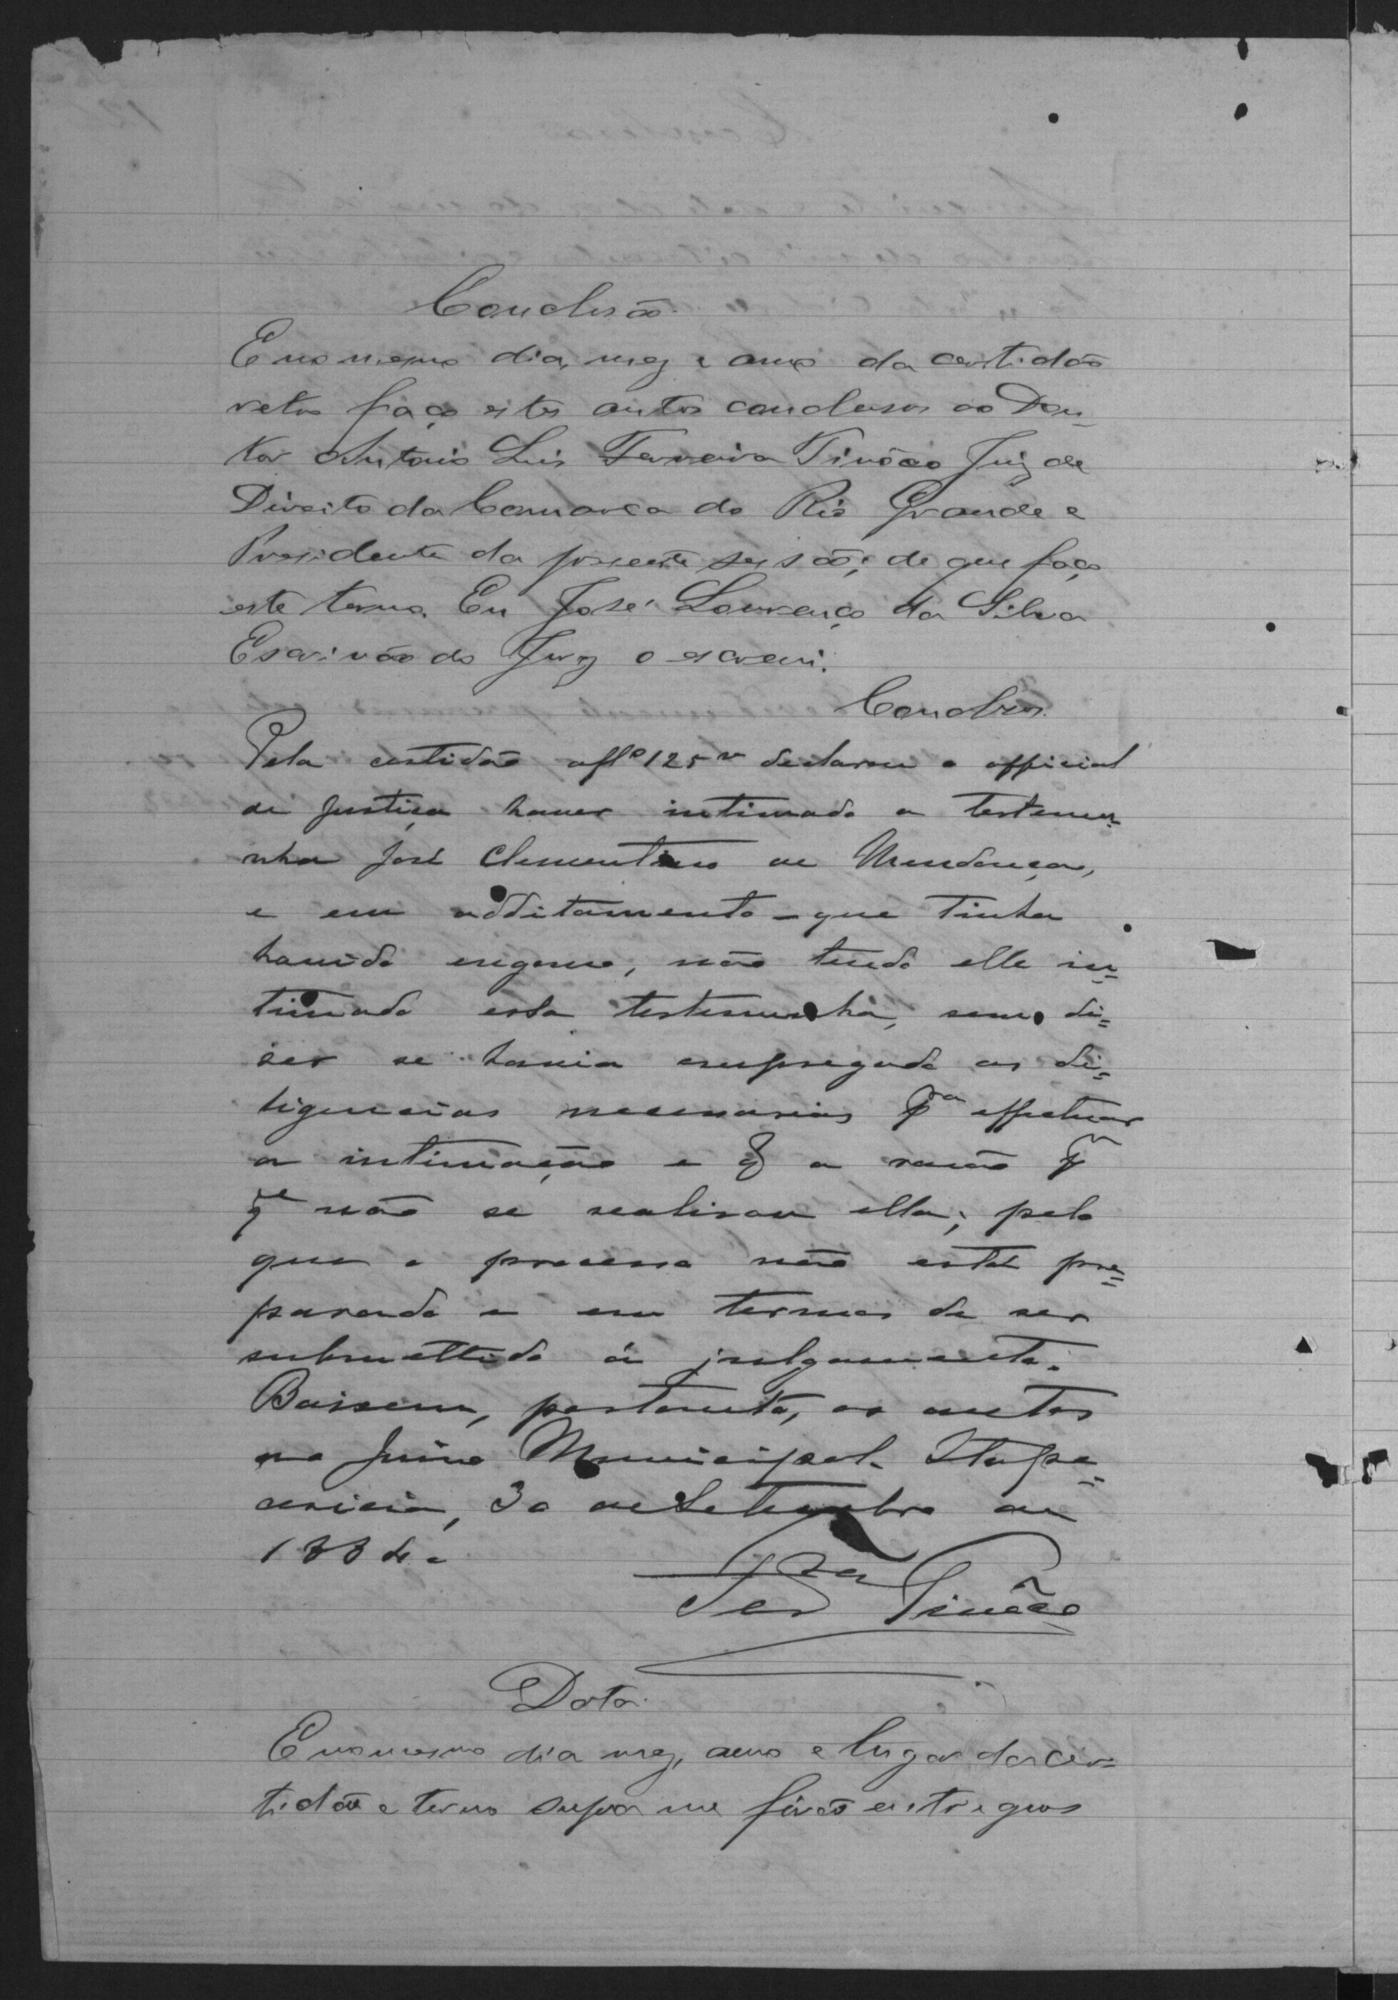 Conclusão.
E no mesmo dia, mez e anno da certidão
retro faço estes autos conclusos ao Dou-
tor Antonio Luis Ferreira Tinôco Juiz de
Direito da Comarca do Rio Grande e
Presidente da presente sessão; de que faço
este termo. Eu José Lourenço da Silva
Escrivão do Jury o escrevi.
Conclusos.
Pela certidão a fl. 125 v declarou o official
de justiça haver intimado a testemu-
nha José Clementino de Mendonça,
e em additamento - que tinha
havido engano, não tendo elle in=
timado essa testemunha, sem di=
ser se havia empregado as di=
ligencias necessarias pª effectuar
a intimação e q a rasão pr
qe não se realisou ella; pelo
que o processo não está pre=
parado e em termos de ser
submettido á julgamento.
Baixem, portanto, os autos
no Juiso Municipal. Itape=
cerica, 30 de Setembro de
1884.
Ferra Tinôco
Data.
E no mesmo dia mez, anno e lugar da cer=
tidão e termo supra me forão entregues